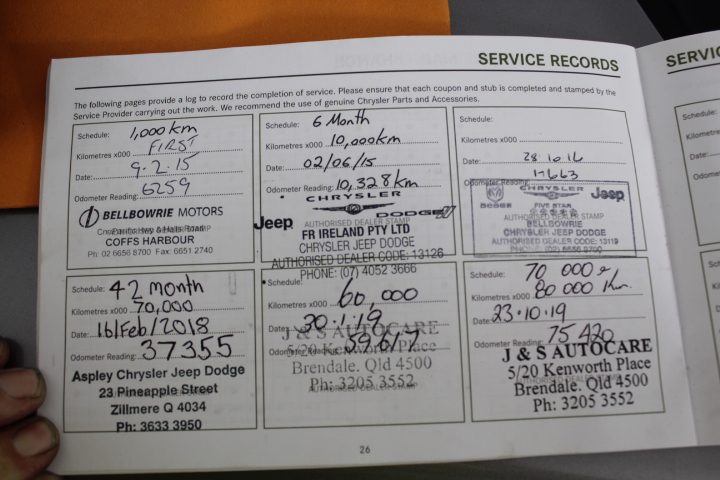 SERVICE RECORDS
The following pages provide a log to record the completion of service. Please ensure that each coupon and stub is completed and stamped by the
Service Provider carrying out the work. We recommend the use of genuine Chrysler Parts and Accessories.
Schedule: 1,000 km
Kilometres x000 FIRST
Date: 9.2.15
Odometer Reading: 6259
BELLBOWRIE MOTORS
COFFS HARBOUR
Ph: 02 6656 8700 Fax: 6651 2740
Schedule: 6 Month
Kilometres x000 10,000km
Date: 02/06/15
Odometer Reading: 10,328km
CHRYSLER
Jeep DODGE
AUTHORISED DEALER STAMP
FR IRELAND PTY LTD
CHRYSLER JEEP DODGE
AUTHORISED DEALER CODE: 13126
PHONE: (07) 4052 3666
Schedule:
Kilometres x000
Date: 28 10 16
Odometer Reading: 17663
CHRYSLER Jeep
DODGE FIVE STAR
AUTHORISED DEALER STAMP
BELLBOWRIE
CHRYSLER JEEP DODGE
AUTHORISED DEALER CODE: 13119
Schedule: 42 month
Kilometres x000 70,000
Date: 16/Feb/2018
Odometer Reading: 37355
Aspley Chrysler Jeep Dodge
23 Pineapple Street
Zillmere Q 4034
Ph: 3633 3950
Schedule:
Kilometres x000 60,000
Date: 30.1.19
Odometer Reading: 59617
J & S AUTOCARE
5/20 Kenworth Place
Brendale. Qld 4500
Ph: 3205 3552
AUTHORISED DEALER STAMP
Schedule: 70 000
Kilometres x000 80 000 km
Date: 23.10.19
Odometer Reading: 75420
J & S AUTOCARE
5/20 Kenworth Place
AUTHORISED DEALER STAMP
Brendale. Qld 4500
Ph: 3205 3552
26
SERVIC